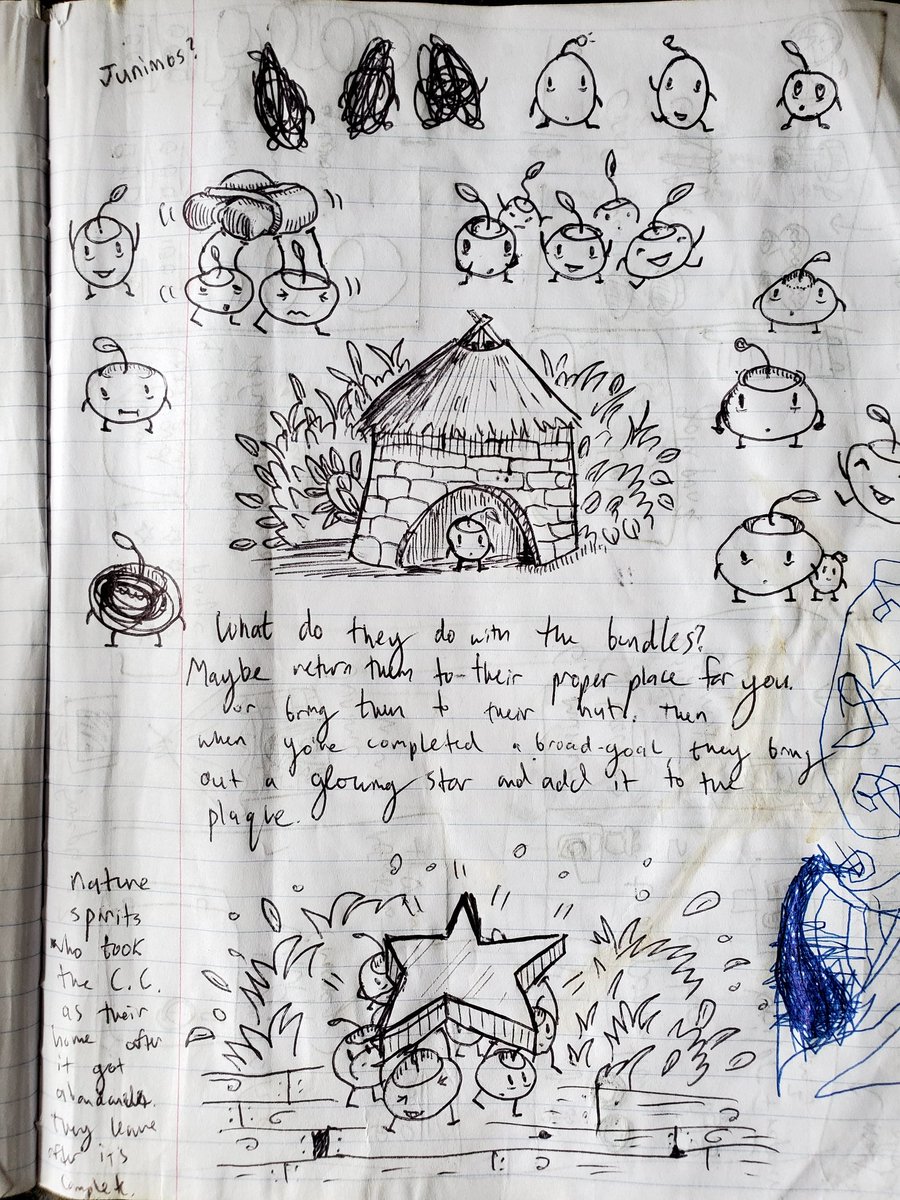 Junimos?
What do they do with the bundles?
Maybe return them to their proper place for you.
or bring them to their hut. Then
when you've completed a broad-goal, they bring
out a glowing star and add it to the
plaque.
nature
spirits
who took
the C.C.
as their
home after
it got
they leave
after its
complete.